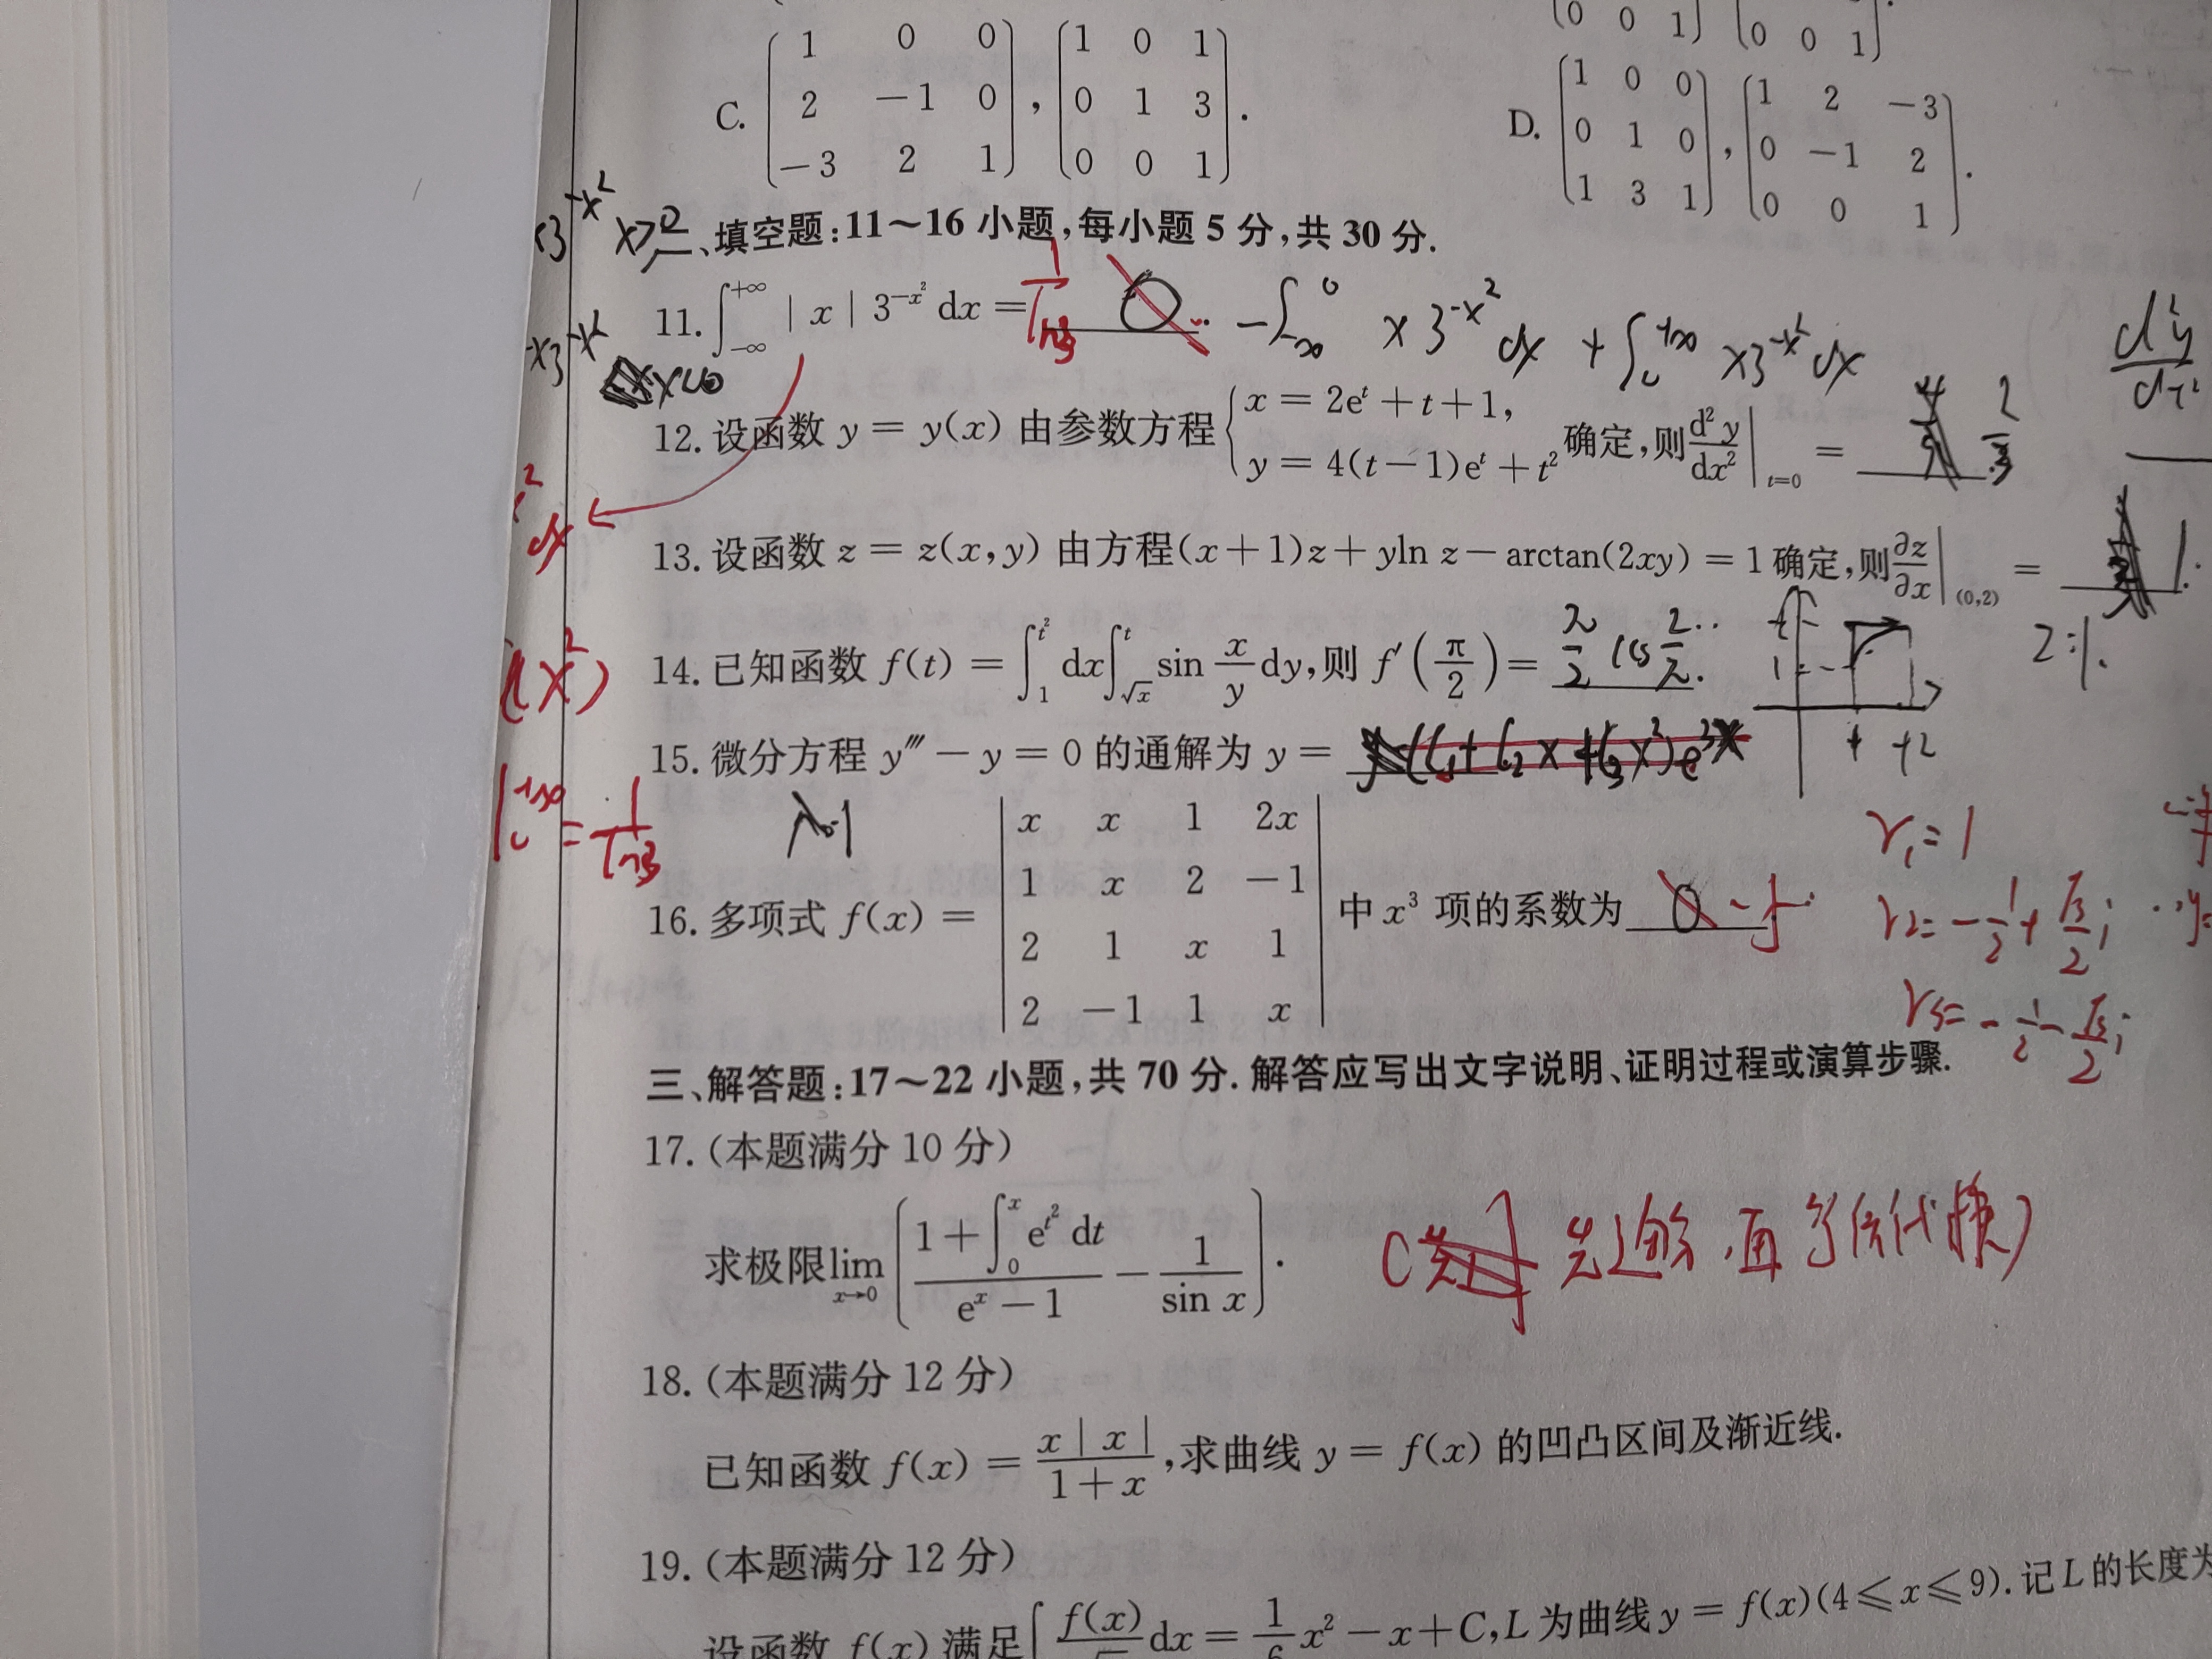 (0 0 1) (0 0 1).
C. (1 0 0; 2 −1 0; −3 2 1), (1 0 1; 0 1 3; 0 0 1).
D. (1 0 0; 0 1 0; 1 3 1), (1 2 −3; 0 −1 2; 0 0 1).
x3^{-x²} x>0
二、填空题:11～16 小题,每小题 5 分,共 30 分.
11. ∫_{−∞}^{+∞} | x | 3^{−x²} dx = 1/ln3 0. −∫_{−∞}^{0} x3^{-x²}dx + ∫_{0}^{+∞} x3^{-x²}dx
-x3^{-x²} x<0
12. 设函数 y = y(x) 由参数方程 { x = 2e^t + t + 1, y = 4(t−1)e^t + t² 确定,则 d²y/dx² |_{t=0} = 2/3.
d²y/dx²
dx²
13. 设函数 z = z(x,y) 由方程(x+1)z + yln z − arctan(2xy) = 1 确定,则 ∂z/∂x |_{(0,2)} = 1.
14. 已知函数 f(t) = ∫_{1}^{t²} dx ∫_{√x}^{t} sin x/y dy,则 f′(π/2) = π/2 cos 2/π.
15. 微分方程 y‴ − y = 0 的通解为 y = (C₁+C₂x+C₃x²)e^{3x}
λ-1
|_{0}^{+∞} = 1/ln3
r₁=1
r₂= −1/2 + √3/2 i
r₃= −1/2 − √3/2 i
16. 多项式 f(x) = | x x 1 2x; 1 x 2 −1; 2 1 x 1; 2 −1 1 x | 中 x³ 项的系数为 0 -5.
三、解答题:17～22 小题,共 70 分. 解答应写出文字说明、证明过程或演算步骤.
17. (本题满分 10 分)
求极限 lim_{x→0} ( (1+∫_{0}^{x} e^{t²} dt)/(e^x − 1) − 1/sin x ).
18. (本题满分 12 分)
已知函数 f(x) = x | x |/(1 + x),求曲线 y = f(x) 的凹凸区间及渐近线.
19. (本题满分 12 分)
设函数 f(x) 满足∫ f(x)/√ dx = 1/6 x² − x + C, L 为曲线 y = f(x)(4 ≤ x ≤ 9). 记 L 的长度为